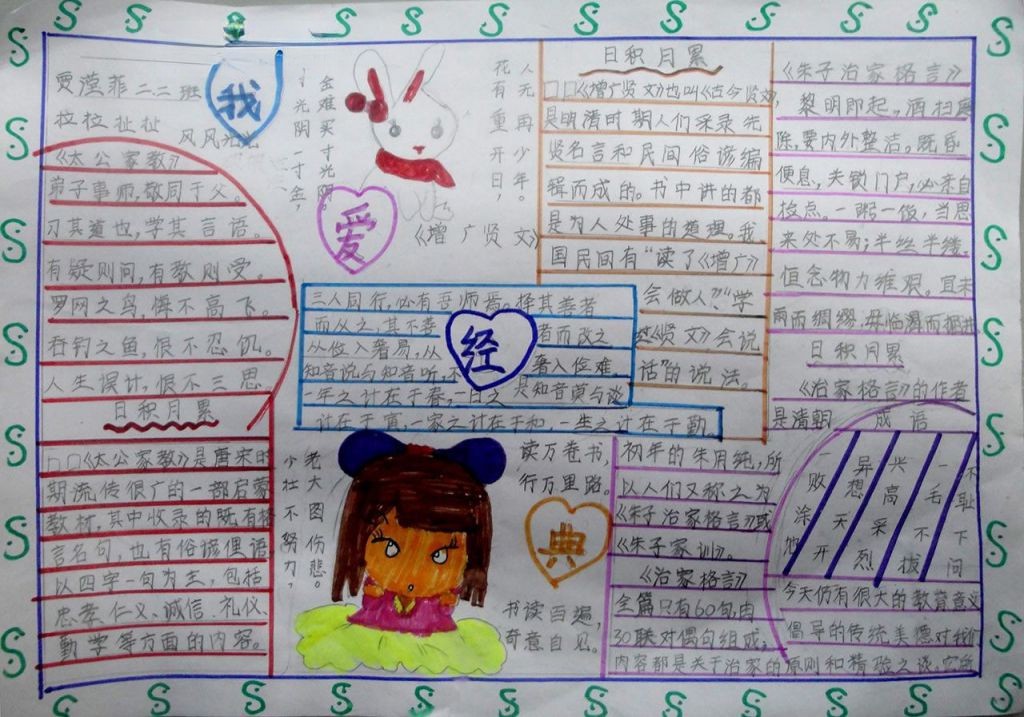 我
爱
经
典
贾滢菲 二二班
拉拉扯扯 风风光光
《太公家教》
弟子事师,敬同于父。
习其道也,学其言语。
有疑则问,有教则受。
罗网之鸟,悔不高飞。
吞钓之鱼,恨不忍饥。
人生误计,恨不三思。
日积月累
口口《太公家教》是唐宋时
期流传很广的一部启蒙
教材,其中收录的既有格
言名句,也有俗谚俚语,
以四字一句为主,包括
忠孝、仁义、诚信、礼仪、
勤学等方面的内容。
一寸光阴一寸金,
寸金难买寸光阴。
花有重开日,
人无再少年。
《增广贤文》
三人同行,必有吾师焉。择其善者
而从之,其不善者而改之
从俭入奢易,从奢入俭难。
知音说与知音听,不是知音莫与谈
一年之计在于春,一日之
计在于寅,一家之计在于和,一生之计在于勤。
少壮不努力,
老大图伤悲。
读万卷书,
行万里路。
书读百遍,
奇意自见。
日积月累
口口《增广贤文》也叫《古今贤文》
是明清时期人们采录先
贤名言和民间俗谚编
辑而成的。书中讲的都
是为人处事的道理。我
国民间有“读了《增广》
会做人”“学
《贤文》会说
话”的说法。
《朱子治家格言》
黎明即起,洒扫庭
除,要内外整洁。既昏
便息,关锁门户,必亲自
检点。一粥一饭,当思
来处不易;半丝半缕,
恒念物力维艰。宜未
雨而绸缪,毋临渴而掘井
日积月累
《治家格言》的作者
是清朝
初年的朱用纯,所
以人们又称之为
《朱子治家格言》或
《朱子家训》。
《治家格言》
全篇只有60句,由
30联对偶句组成,
内容都是关于治家的原则和精验之谈,它所
倡导的传统美德对我们
今天仍有很大的教育意义
成语
一败涂地
异想天开
兴高采烈
一毛不拔
不耻下问